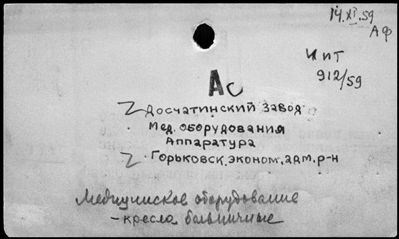 14.XI.59
АФ
И и Т
912/59
Ас
Досчатинский завод
Мед. оборудования
Аппаратура
Горьковск. эконом. адм. р-н
Медицинское оборудование
- кресла больничные